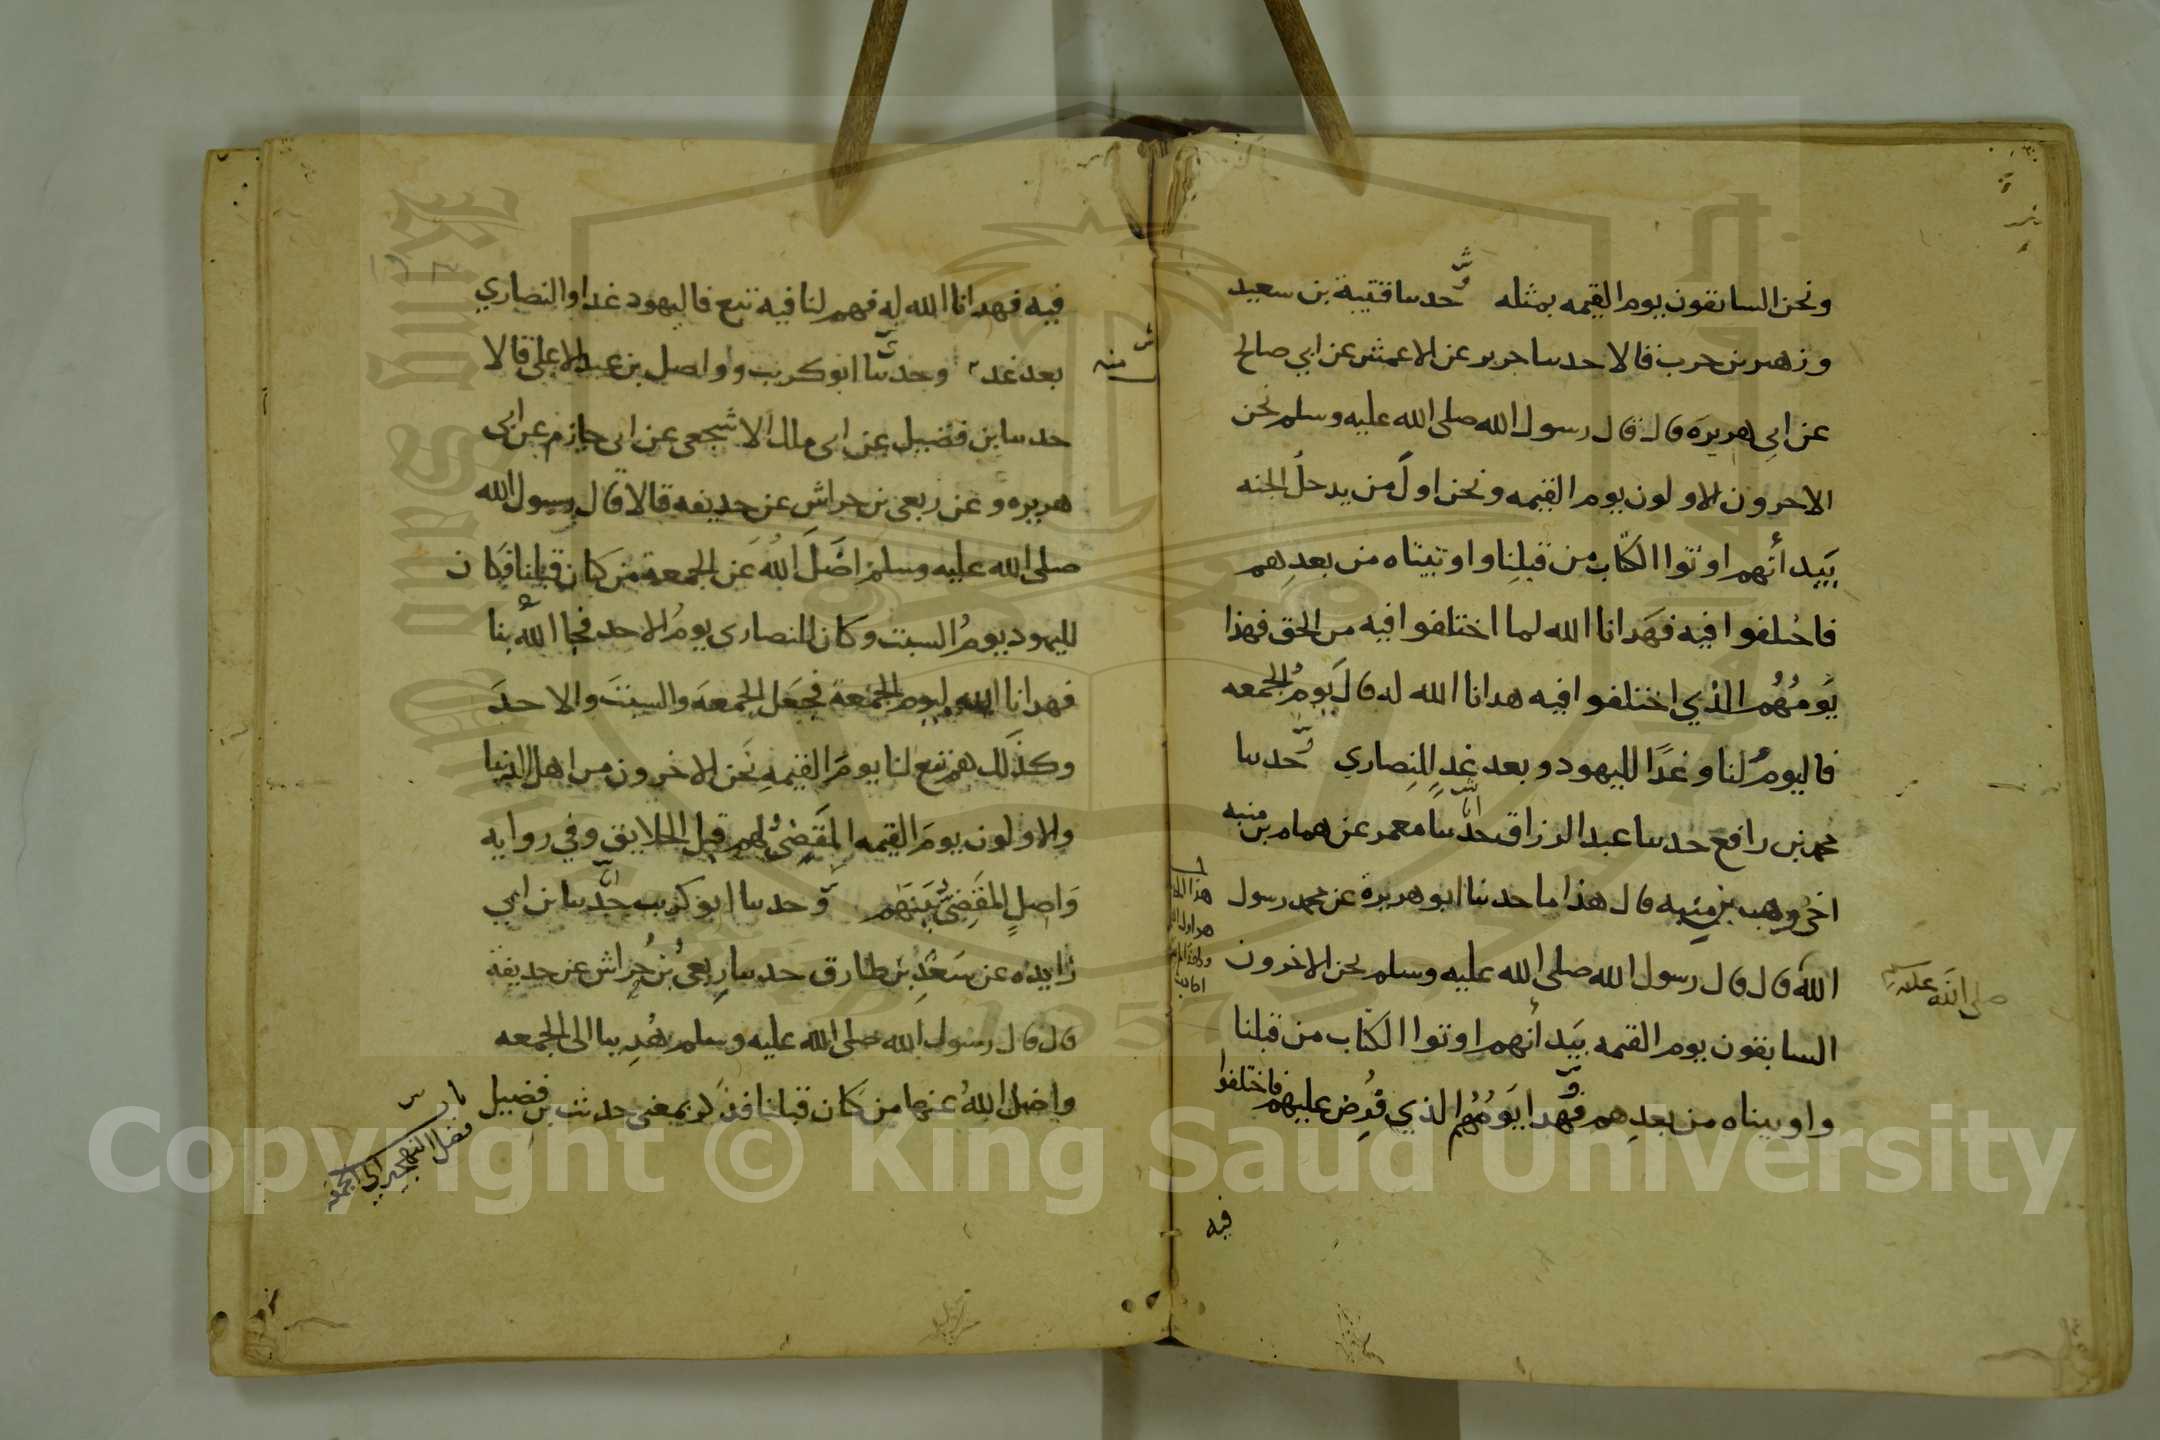 ونحن السابقون يوم القيمه بمثله وحدثنا قتيبة بن سعيد
وزهير بن حرب قالا حدثنا جرير عن الاعمش عن ابي صالح
عن ابي هريرة قال قال رسول الله صلى الله عليه وسلم نحن
الاخرون الاولون يوم القيمه ونحن اول من يدخل الجنه
بَيد أنهم اوتوا الكتاب من قبلِنا واوتيناه من بعدِهم
فاختلفوا فيه فهَدانا الله لما اختلفوا فيه من الحق فهذا
يَومُهُم الذي اختلفوا فيه هدانا الله له قال يَومُ الجمعه
فاليومُ لنا وغدًا لليهود وبعد غدٍ للنصاري وحدثنا
محمد بن رافع حدثنا عبد الرزاق حدثنا معمر عن همام بن منبه
اخي وهب بن منبه قال هذا ما حدثنا ابو هريرة عن محمد رسول
الله قال قال رسول الله صلى الله عليه وسلم نحن الاخرون
صلى الله عليه
السابقون يوم القيمه بَيد أنهم اوتوا الكتاب من قبلنا
واوتيناه من بعدِهم فهذا يَومُهُم الذي فُرِض عليهم فاختلفوا
فيه
فيه فهدانا الله له فهم لنا فيه تبع فاليهود غدا والنصاري
بعد غد وحدثنا ابو كريب وواصل بن عبد الاعلى قالا
منه
حدثنا ابن فضيل عن ابي ملك الاشجعي عن ابي حازم عن ابي
هريره وعن ربعي بن حراش عن حذيفه قالا قال رسول الله
صلى الله عليه وسلم اضَلَّ اللهُ عَن الجمعة مَن كان قبلنا فكان
لليهود يومُ السبت وكان للنصارى يومُ الاحد فجا اللهُ بنا
فهدانا الله ليوم الجمعة فجعَل الجمعةَ والسبتَ والاحدَ
وكذلك هم تبع لنا يومَ القيمهِ نَحن الاخرون من اهل الدنيا
والاولون يومَ القيمه المَقضِيُّ لهم قبل الخلايق وفي روايه
وَاصلٍ المَقضِيُّ بَينَهم وحدثنا ابو كريب حدثنا ابن ابي
زايده عن سَعْدِ بن طارق حدثنا رِبعيُّ بنُ حِراش عن حذيفة
قال قال رسول الله صلى الله عليه وسلم هُدِينا الى الجمعه
واضل اللهُ عنها من كَان قبلنا فذكر بمعنى حديث بن فضيل
باب
فضل التهجير الى الجمعة
Copyright © King Saud University
King Saud University
1957